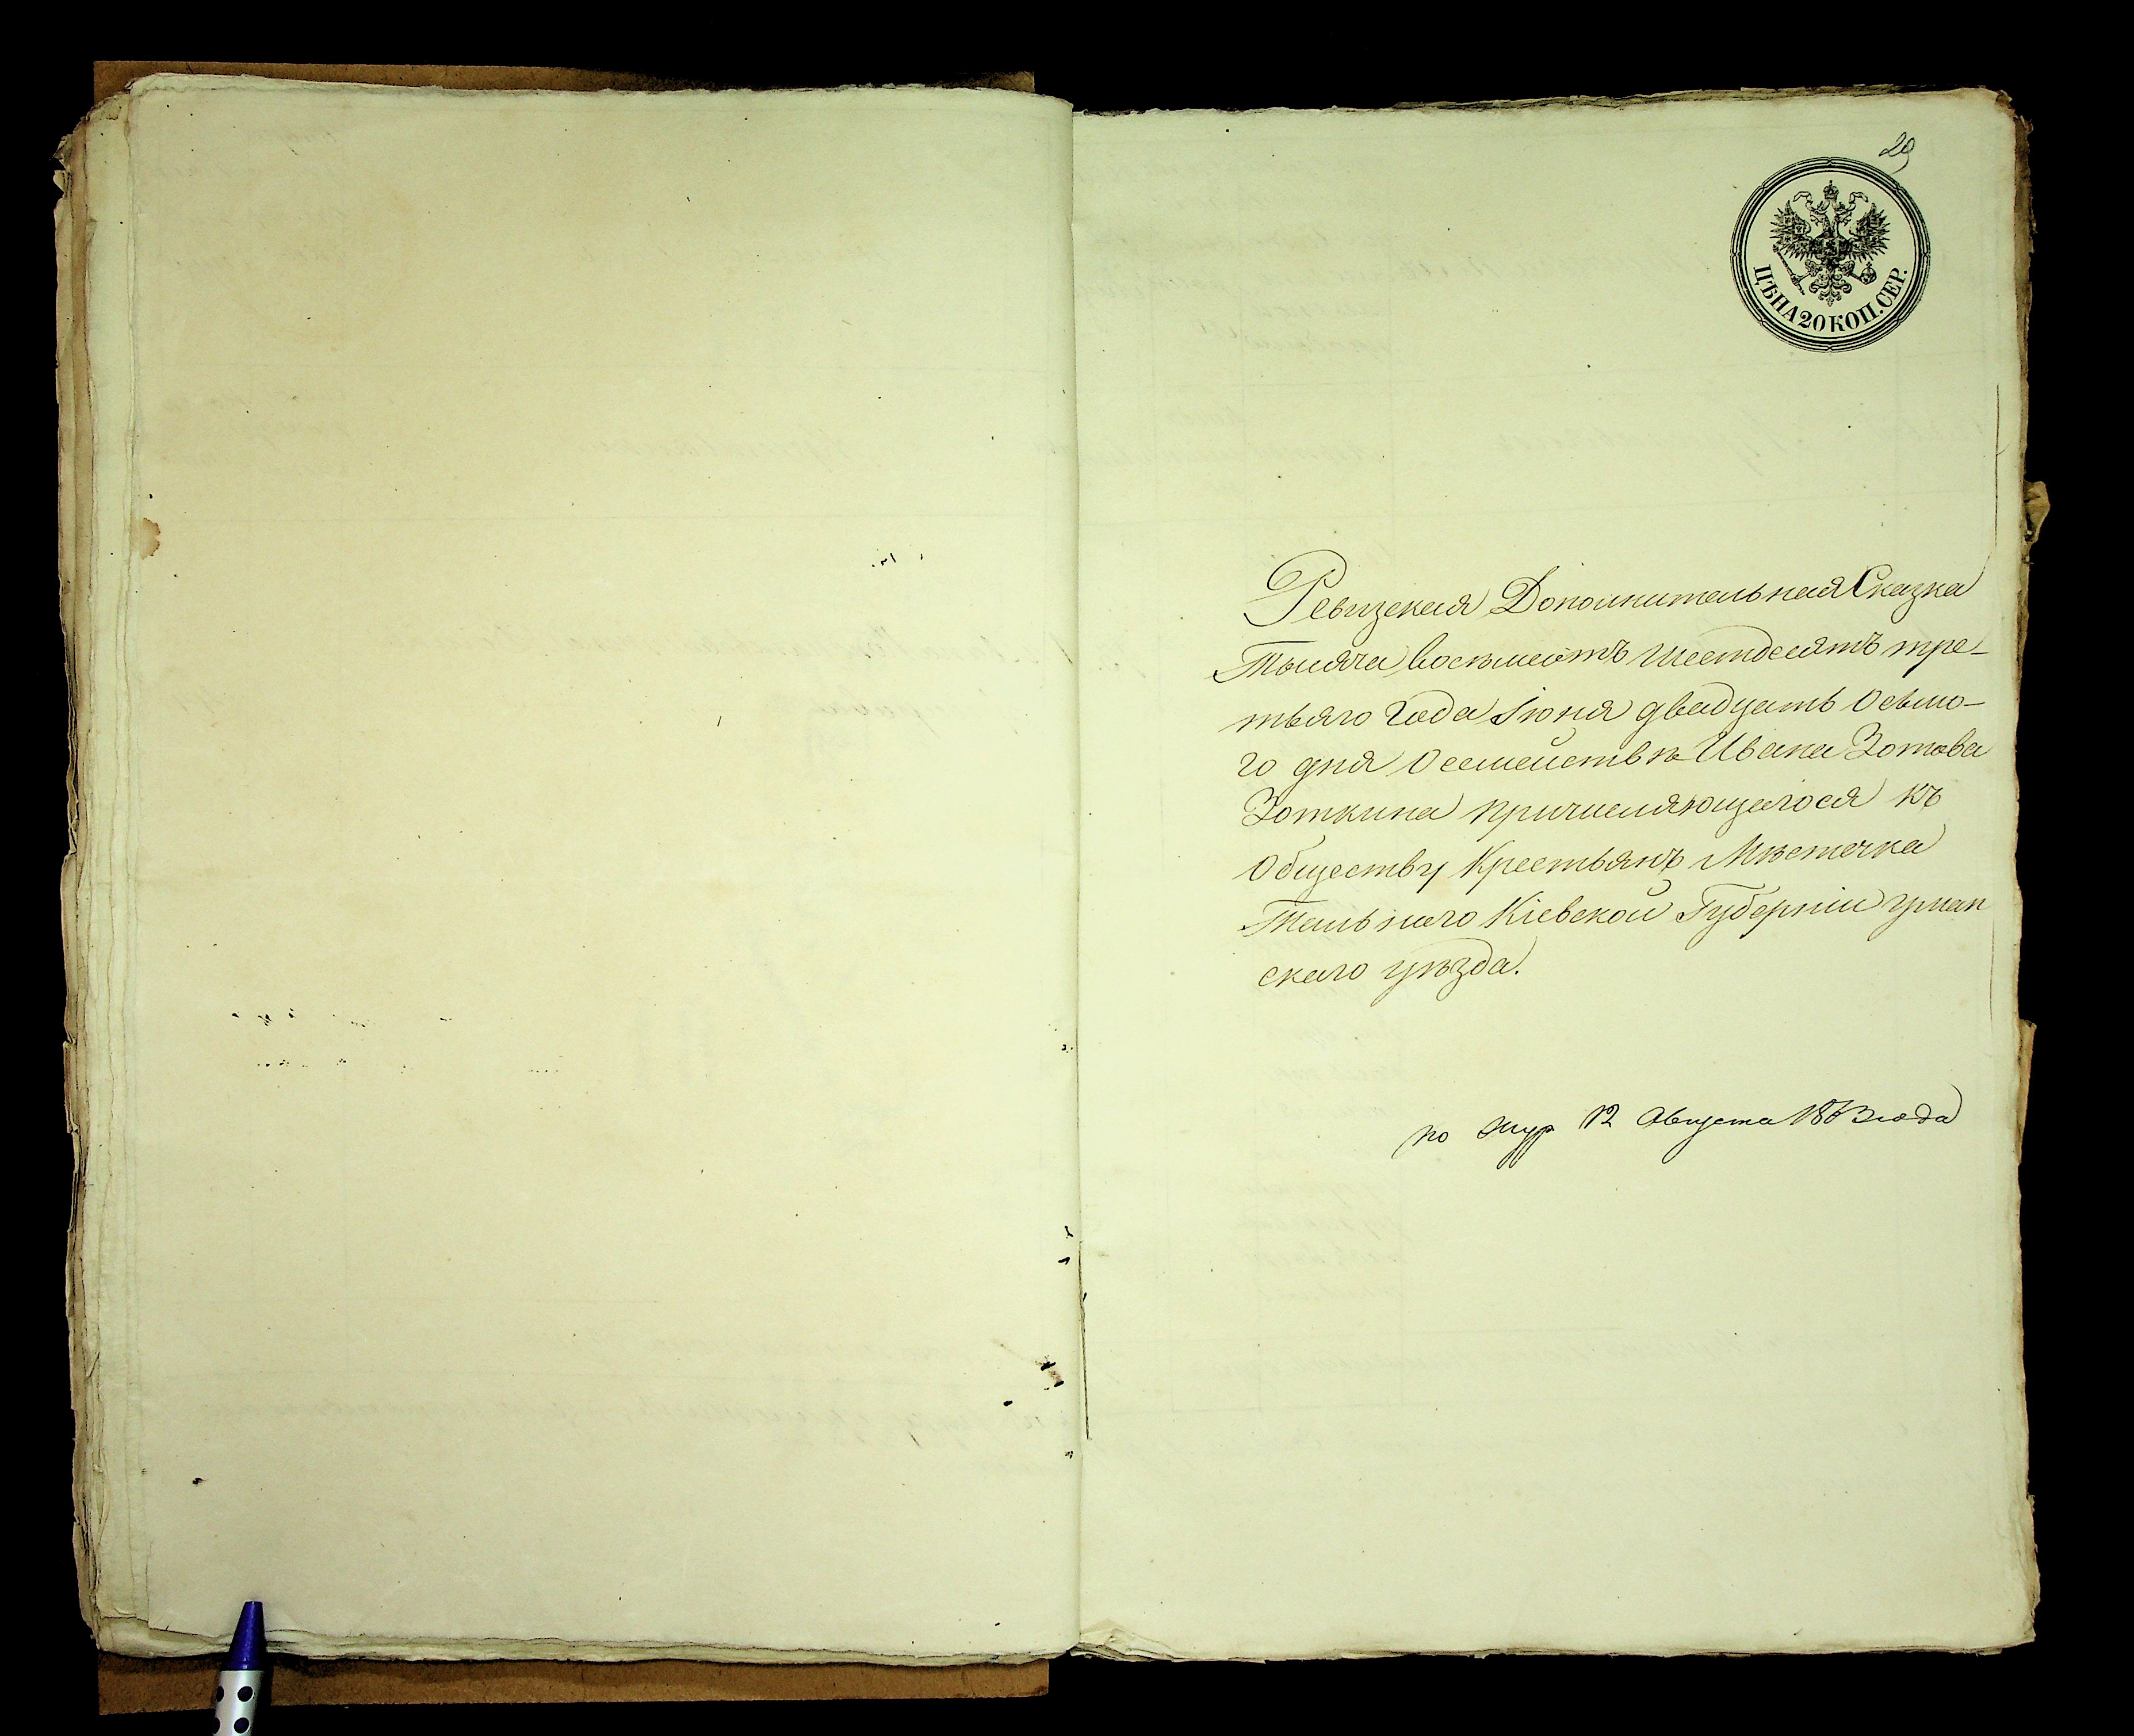 29
ЦѢНА 20 КОП. СЕР.
Ревизская Дополнительная Сказка
Тысяча восемьсотъ шестдесятъ тре-
тьяго года Іюня двадцать осьмо-
го дня о семействѣ Ивана Зотова
Зоткина причисляющагося къ
Обществу Крестьянъ Мѣстечка
Тальнаго Кіевской Губерніи уман
скаго уѣзда.
по жур 12 Августа 1863 года